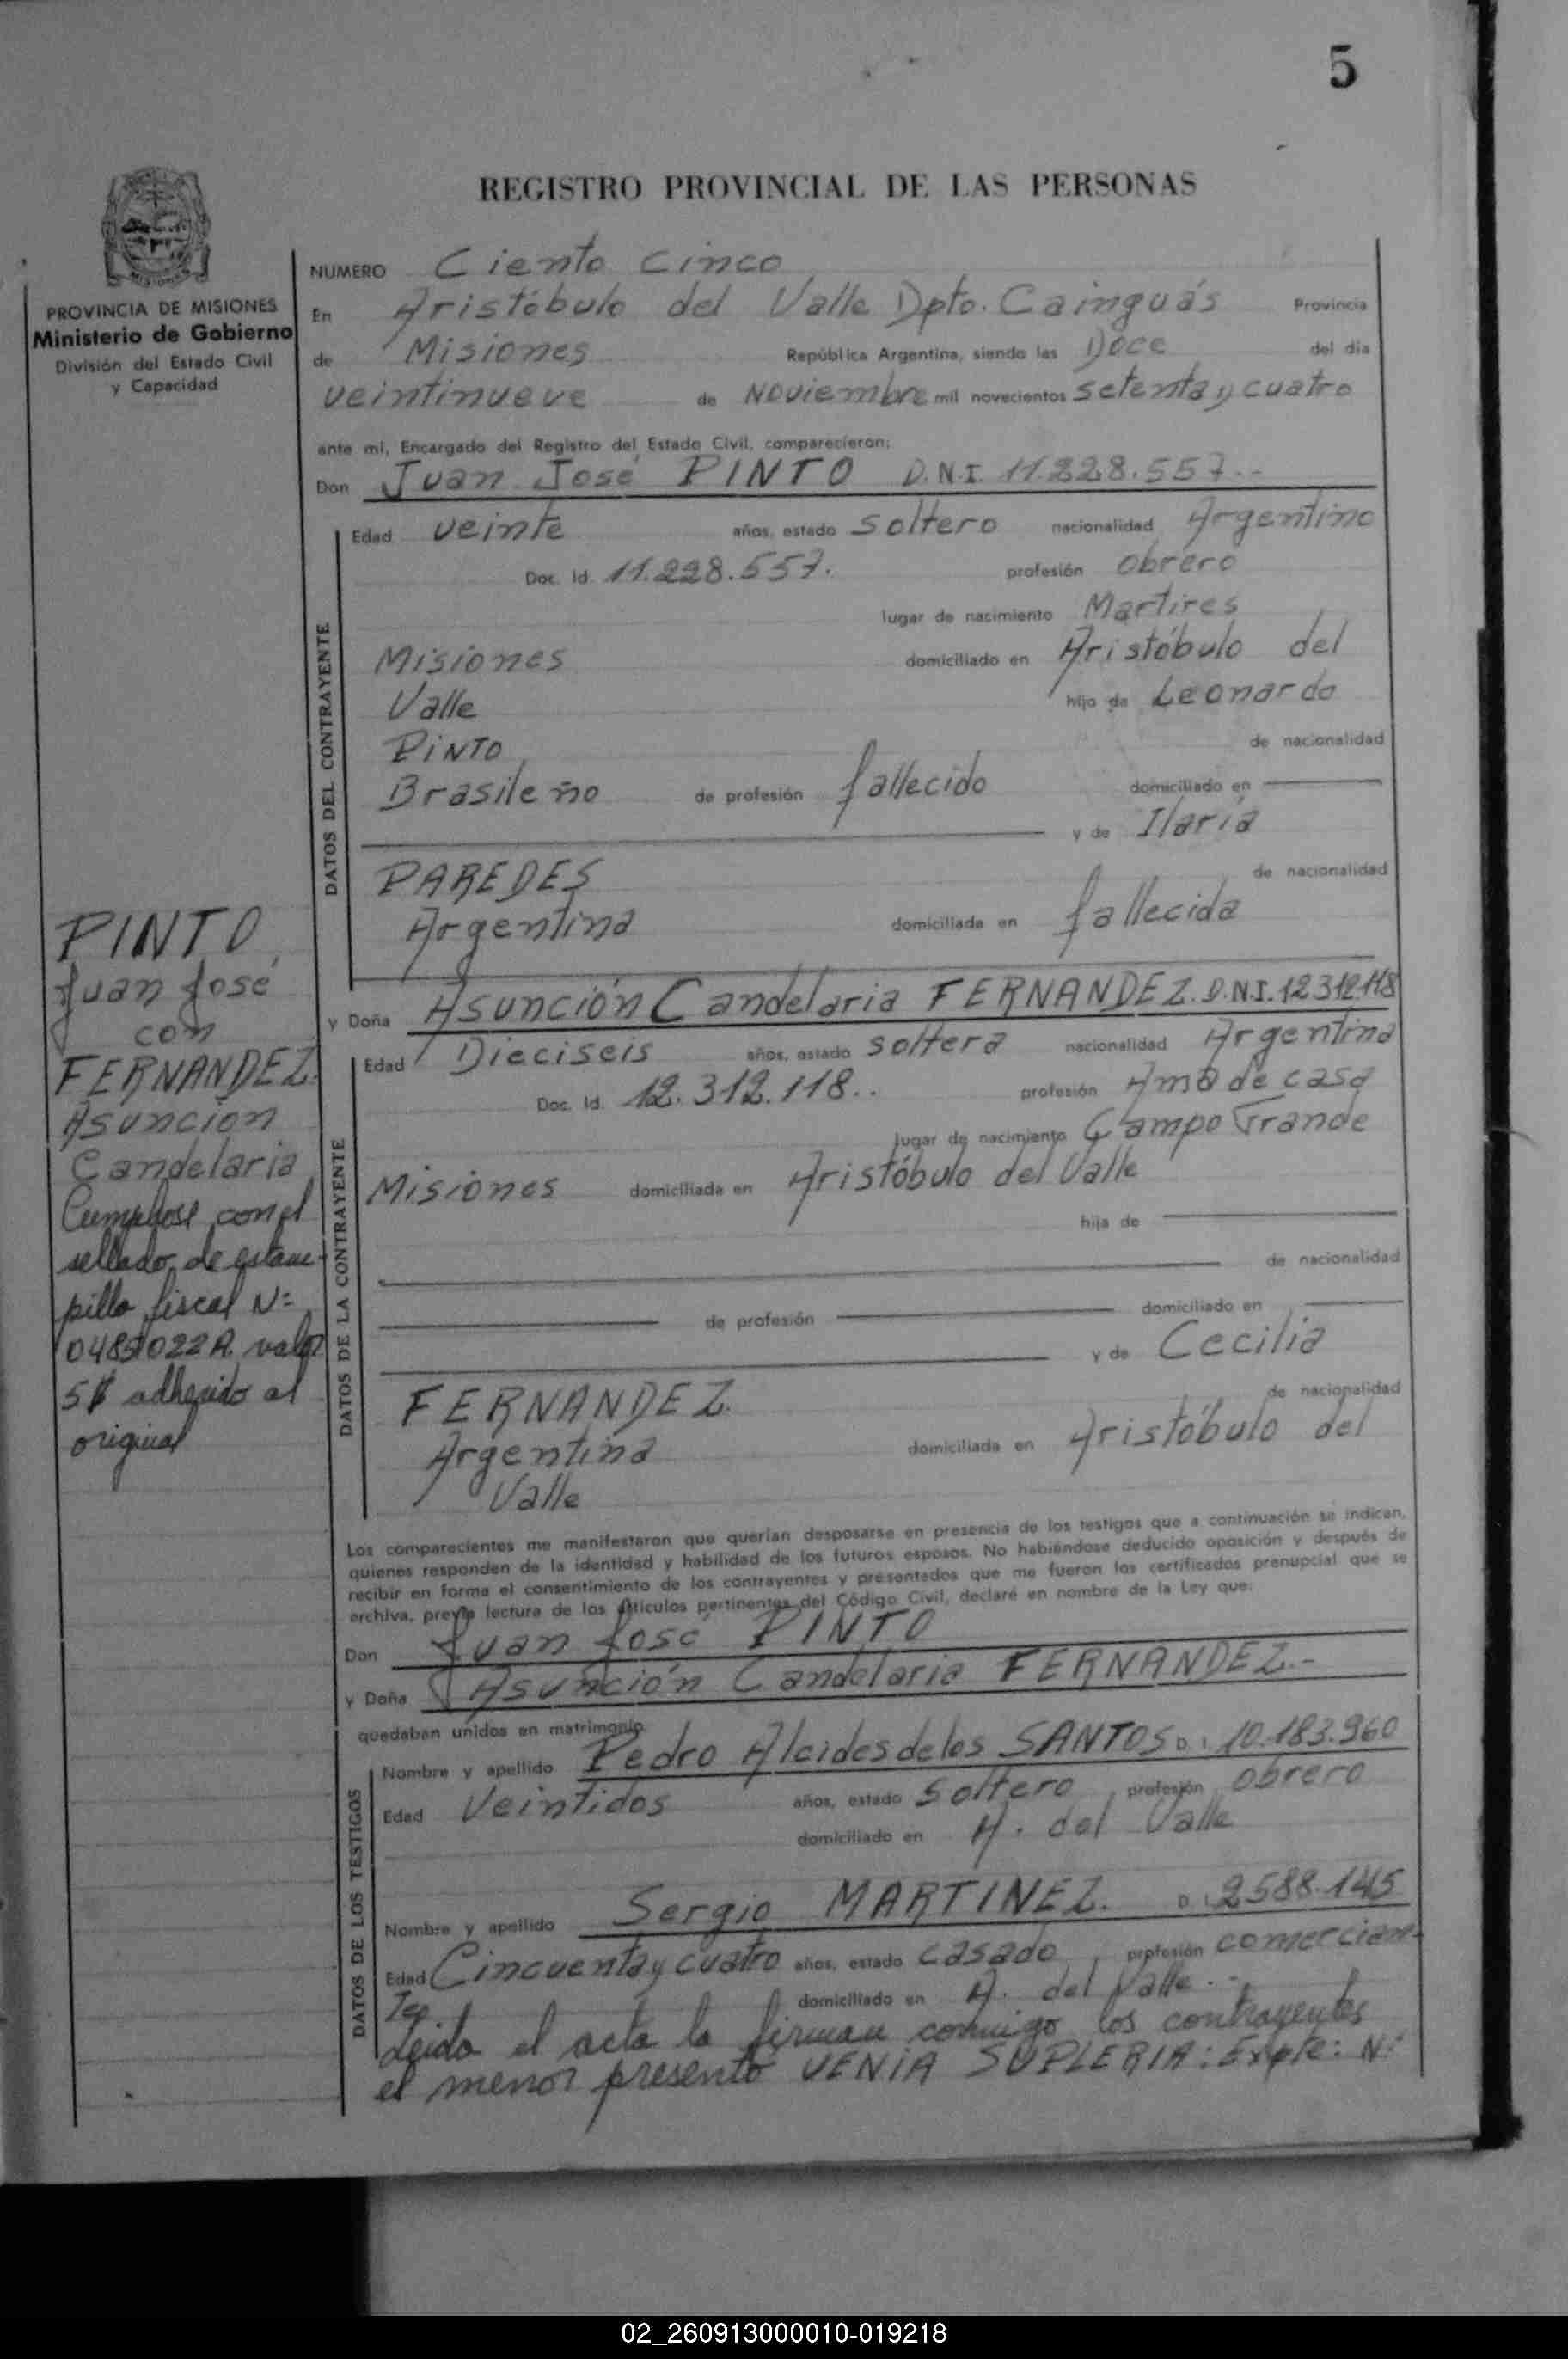 5
REGISTRO PROVINCIAL DE LAS PERSONAS
PROVINCIA DE MISIONES
Ministerio de Gobierno
División del Estado Civil
y Capacidad
NUMERO Ciento Cinco
En Aristóbulo del Valle Dpto. Cainguás Provincia
de Misiones República Argentina, siendo las Doce del día
veintinueve de Noviembre mil novecientos setenta y cuatro
ante mi, Encargado del Registro del Estado Civil, comparecieron:
Don Juan José PINTO D.N.I. 11.228.557.-
DATOS DEL CONTRAYENTE
Edad veinte años, estado soltero nacionalidad Argentino
Doc. Id. 11.228.557. profesión obrero
lugar de nacimiento Martires
Misiones domiciliado en Aristóbulo del
Valle hijo de Leonardo
PINTO de nacionalidad
Brasileño de profesión fallecido domiciliado en
y de Ilaria
PAREDES de nacionalidad
Argentina domiciliada en fallecida
y Doña Asunción Candelaria FERNANDEZ. D.N.I. 12312118
DATOS DE LA CONTRAYENTE
Edad Dieciseis años, estado soltera nacionalidad Argentina
Doc. Id. 12.312.118.. profesión Ama de casa
lugar de nacimiento Campo Grande
Misiones domiciliada en Aristóbulo del Valle
hija de
de nacionalidad
de profesión domiciliado en
y de Cecilia
FERNANDEZ. de nacionalidad
Argentina domiciliada en Aristóbulo del
Valle
PINTO
Juan José
con
FERNANDEZ.
Asuncion
Candelaria
Cumplose con el
sellado de estam-
pilla fiscal N=
valor
5$ adherido al
original
Los comparecientes me manifestaron que querían desposarse en presencia de los testigos que a continuación se indican,
quienes responden de la identidad y habilidad de los futuros esposos. No habiéndose deducido oposición y después de
recibir en forma el consentimiento de los contrayentes y presentados que me fueron los certificados prenupcial que se
archiva, previa lectura de los artículos pertinentes del Código Civil, declaré en nombre de la Ley que:
Don Juan José PINTO
y Doña Asunción Candelaria FERNANDEZ.-
quedaban unidos en matrimonio.
DATOS DE LOS TESTIGOS
Nombre y apellido Pedro Alcides de los SANTOS D. I. 10.183.960
Edad Veintidos años, estado soltero, profesión obrero
domiciliado en A. del Valle
Nombre y apellido Sergio MARTINEZ. D. I. 2588.145
Edad Cincuenta y cuatro años, estado casado, profesión comercian-
Te domiciliado en A. del Valle.-
Leida el acta la firman conmigo los contrayentes
el menor presento VENIA SUPLERIA: Expte: Nº
02_260913000010-019218